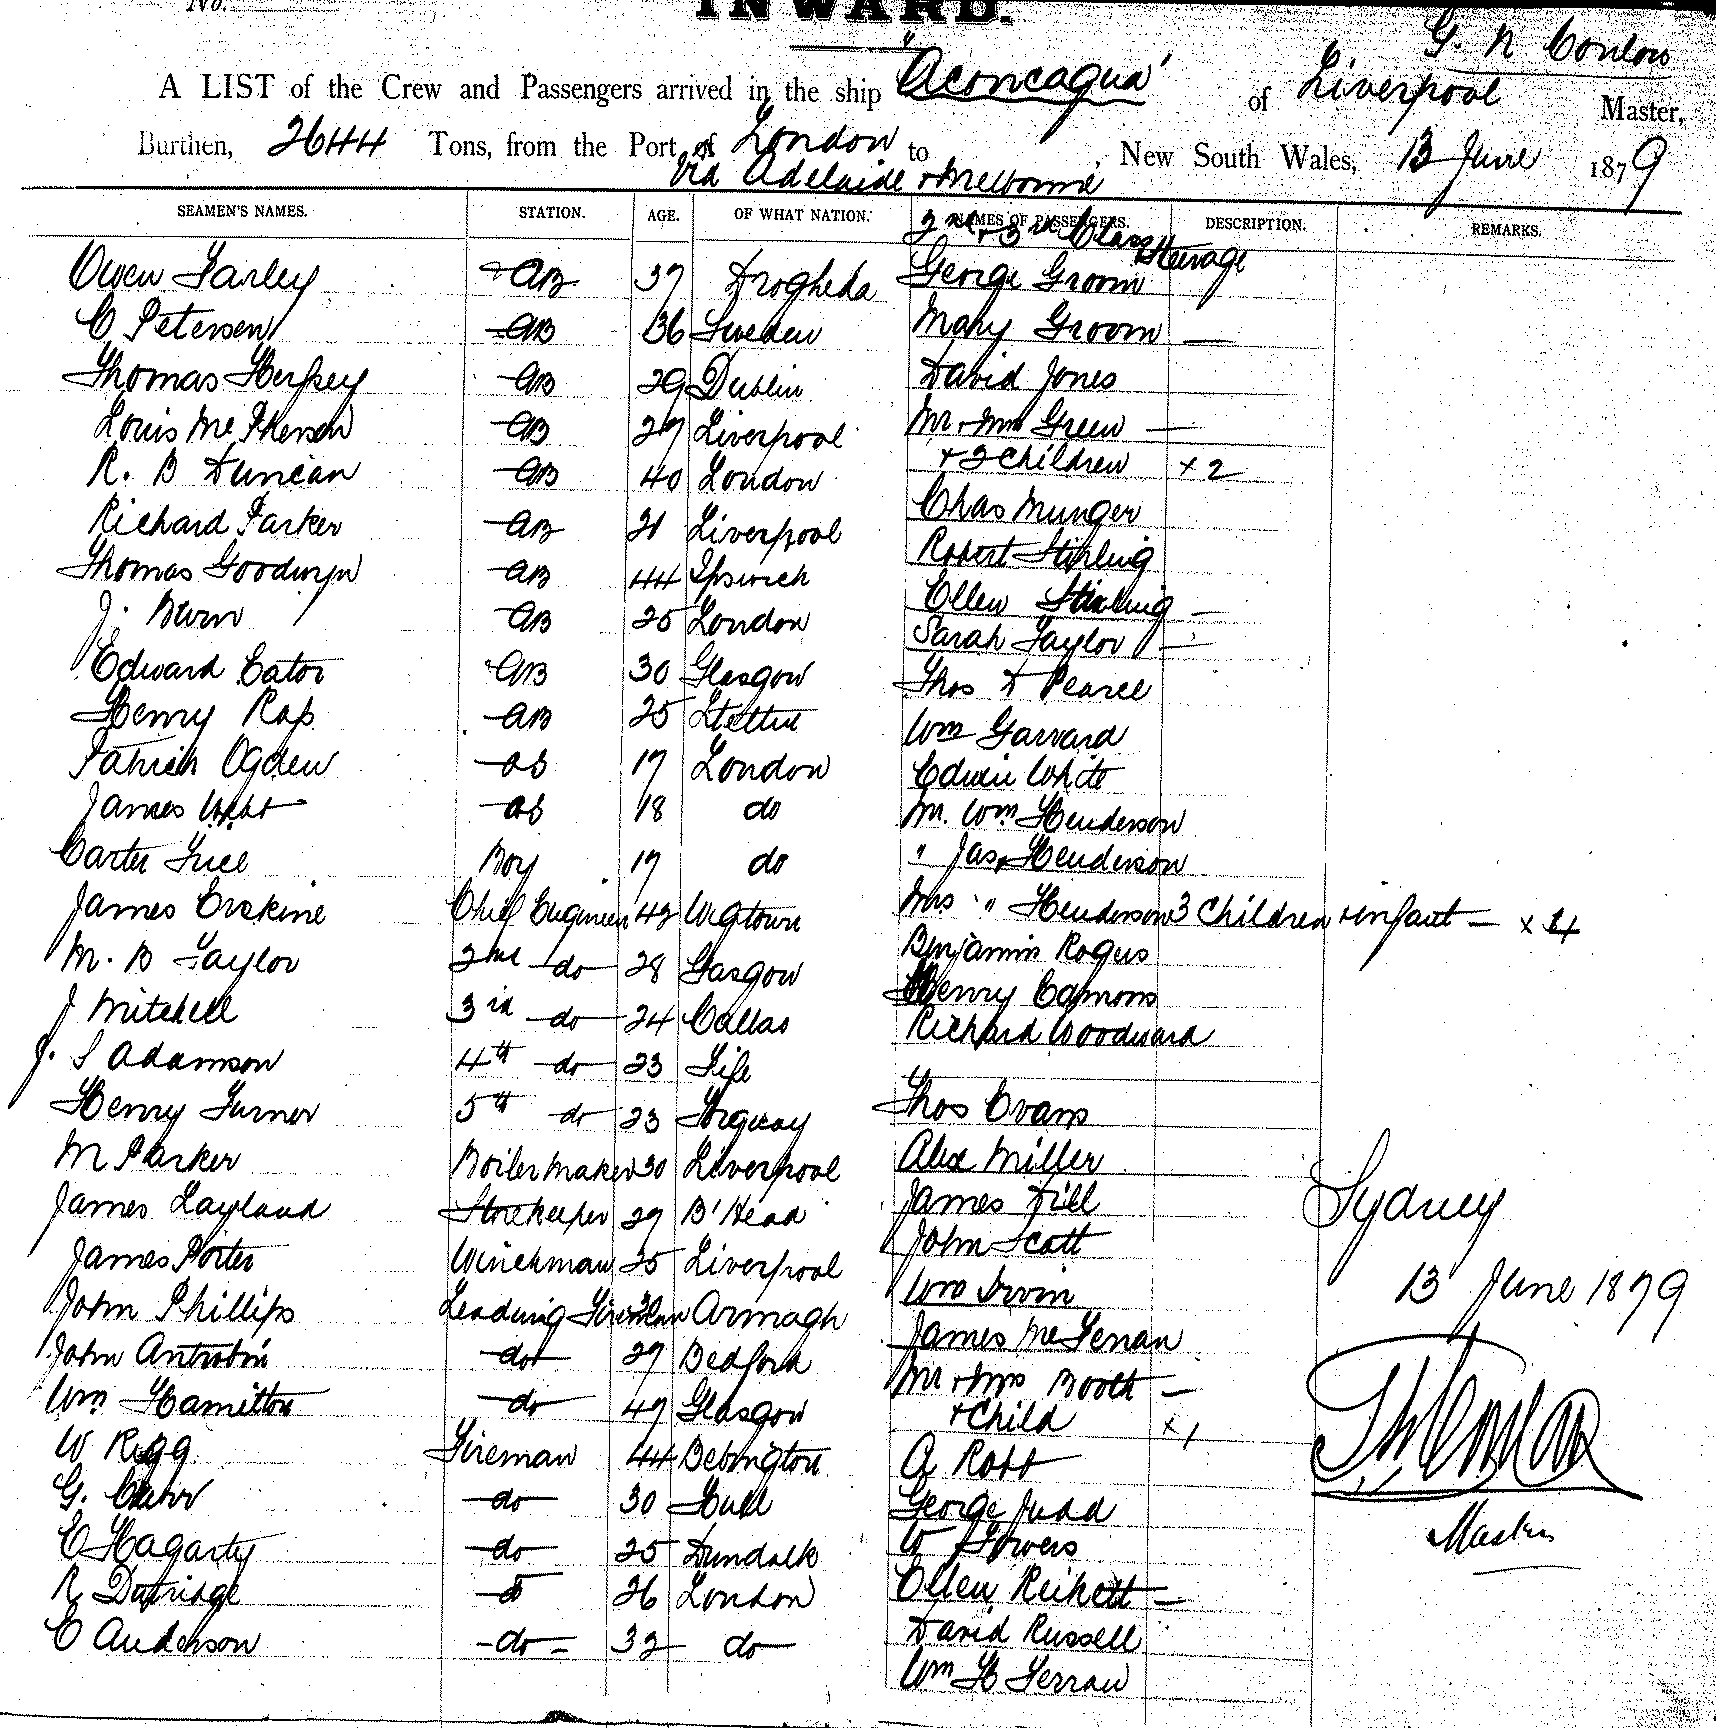 No.
INWARD.
G. N Conlan
A LIST of the Crew and Passengers arrived in the ship "Aconcagua" of Liverpool Master,
Burthen, 2644 Tons, from the Port of London to , New South Wales, 13 June 1879
via Adelaide & Melbourne
SEAMEN'S NAMES. STATION. AGE. OF WHAT NATION. NAMES OF PASSENGERS. DESCRIPTION. REMARKS.
2nd & 3rd Class Steerage
Owen Farley AB 37 Drogheda George Groom
C Petersen AB 36 Sweden Mary Groom —
Thomas AB 29 Dublin David Jones
Louis McPherson AB 27 Liverpool Mr & Mrs Green —
R. B Duncan AB 40 London + 2 Children × 2
Richard Parker AB 21 Liverpool Chas Munger
Thomas Goodwyn AB 44 Ipswich Robert Stirling
J. AB 25 London Ellen Stirling —
Edward Eator AB 30 Glasgow Sarah Taylor —
Henry AB 25 Stettin Thos D Pearce
Patrick Ogden OS 17 London Wm Garrard
James OS 18 do Edwin White
Carter Boy 17 do Mr. Wm Henderson
" Jas Henderson
James Erskine Chief Engineer 42 Wigtown Mrs " Henderson 3 Children & infant — × 4
M. B Taylor 2nd do 28 Glasgow Benjamin Rogers
J Mitchell 3rd do 24 Henry
J. S Adamson 4th do 23 Fife Richard Woodward
Henry Turner 5th do 23 Torquay Thos Evans
M Parker Boiler maker 30 Liverpool Alex Miller
James Layland Storekeeper 29 B'Head James Dill
James Porter Winchman 25 Liverpool John Scott
John Phillips Leading Fireman Armagh Wm Irvin
John do 29 Bedford James
Wm Hamilton do 49 Glasgow Mr & Mrs Booth —
+ Child × 1
W Rigg Fireman 44 Bebington A Robb
G. do 30 Hull George Judd
E Hagarty do 25 Dundalk W Flowers
R do 26 London Ellen —
C Anderson do 32 do David Russell
Wm H
Sydney
13 June 1879
Master